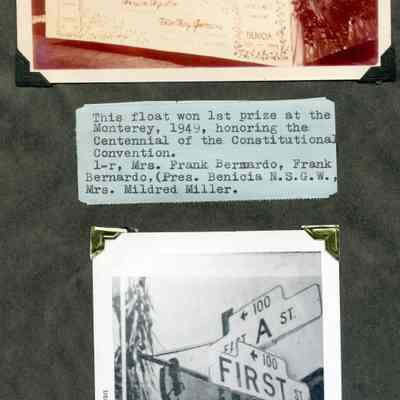 BENICIA
This float won 1st prize at the
Monterey, 1949, honoring the
Centennial of the Constitutional
Convention.
l-r, Mrs. Frank Bernardo, Frank
Bernardo,(Pres. Benicia N.S.G.W.,
Mrs. Mildred Miller.
100
EAST A ST.
100
FIRST ST